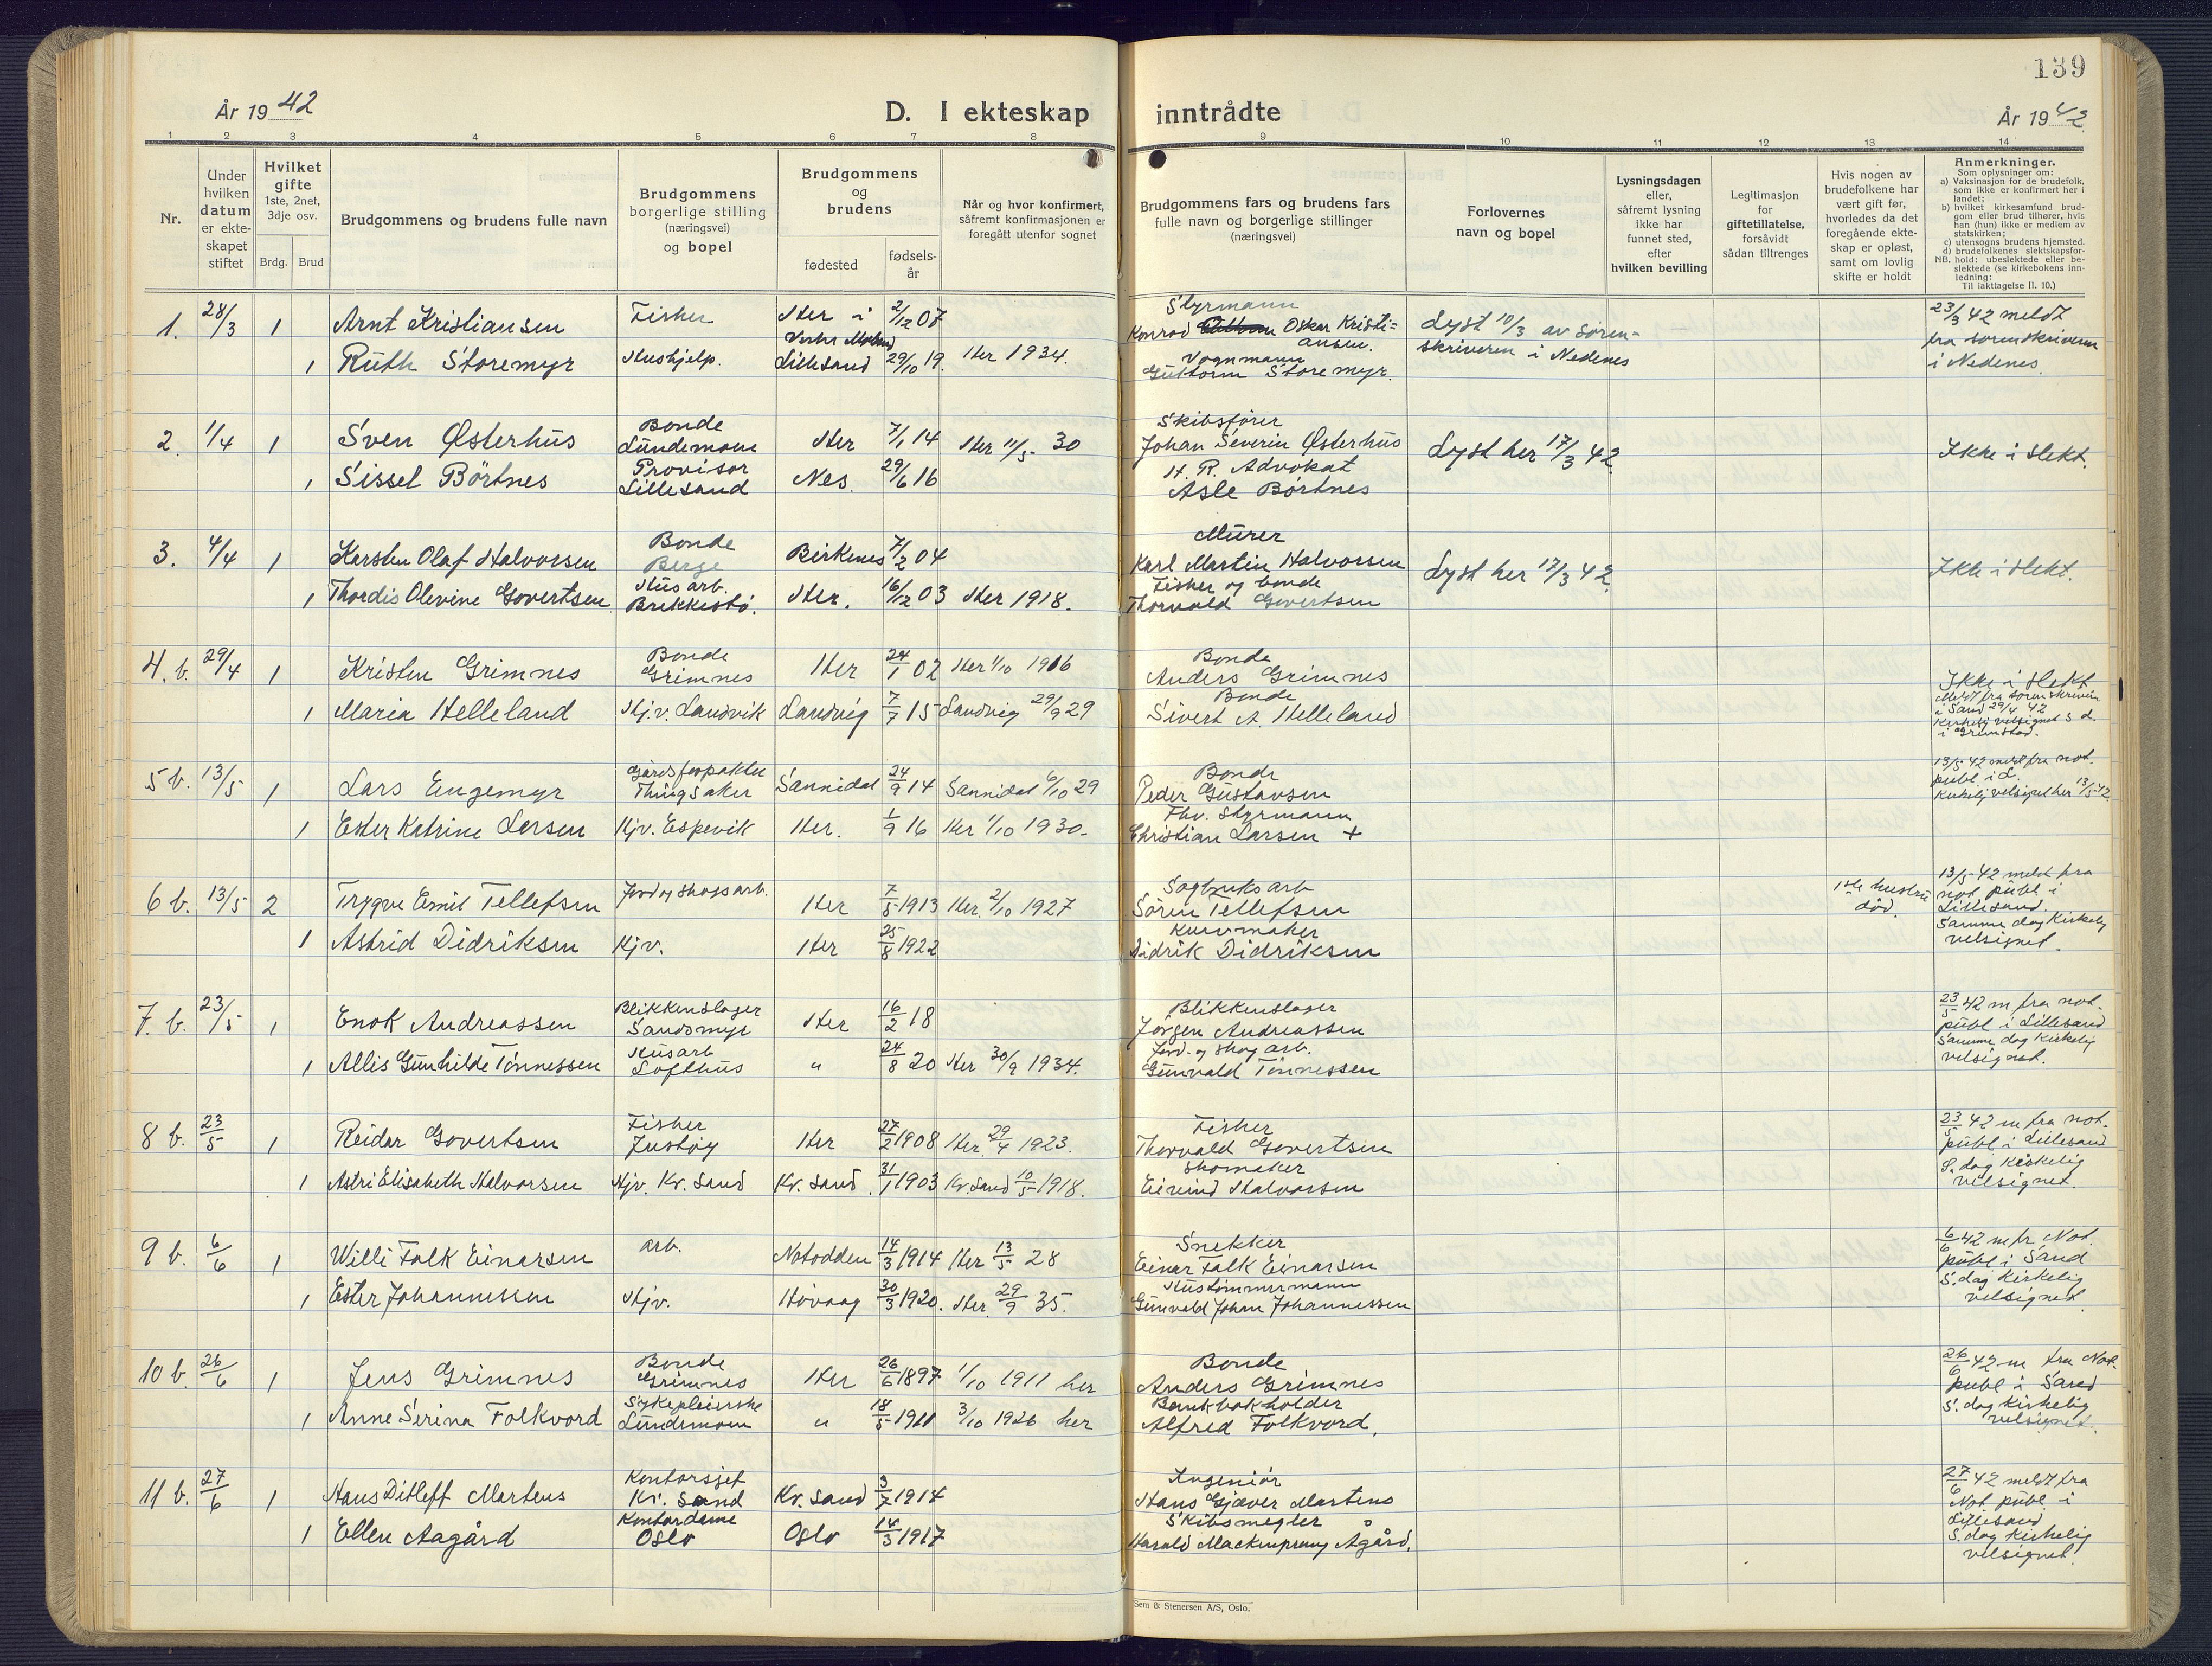 139
År 19 42
D. I ekteskap inntrådte
År 19 42
1 2 3 4 5 6 7 8 9 10 11 12 13 14
Nr.
Under hvilken datum er ekte-skapet stiftet
Hvilket gifte 1ste, 2net, 3dje osv.
Brdg. Brud
Brudgommens og brudens fulle navn
Brudgommens borgerlige stilling (næringsvei) og bopel
Brudgommens og brudens
fødested
fødsels-år
Når og hvor konfirmert, såfremt konfirmasjonen er foregått utenfor sognet
Brudgommens fars og brudens fars fulle navn og borgerlige stillinger (næringsvei)
Forlovernes navn og bopel
Lysningsdagen eller, såfremt lysning ikke har funnet sted, efter hvilken bevilling
Legitimasjon for giftetillatelse, forsåvidt sådan tiltrenges
Hvis nogen av brudefolkene har vært gift før, hvorledes da det foregående ekte-skap er opløst, samt om lovlig skifte er holdt
Anmerkninger.
Som oplysninger om:
a) Vaksinasjon for de brudefolk, som ikke er konfirmert her i landet;
b) hvilket kirkesamfund brud-gom eller brud tilhører, hvis han (hun) ikke er medlem av statskirken;
c) utensogns brudens hjemsted.
d) brudefolkenes slektskapsfor-hold: ubeslektede eller be-slektede (se kirkebokens inn-ledning:
NB.
Til iakttagelse II. 10.)
1. 28/3 1 Arnt Kristiansen Fisker Her i 2/12 07 Styrmann Konrad Oskar Kristi=ansen. Lyst 10/3 av Soren-skriveren i Nedenes 23/3 42 meldt fra sorenskriveren i Nedenes
1 Ruth Storemyr Hushjelp. Lillesand 29/10 19. Her 1934. Vognmann Guttorm Storemyr.
2. 1/4 1 Sven Østerhus Bonde Lundemoen Her 7/1 14 Her 11/5 30 Skibsfører Johan Severin Østerhus Lyst her 17/3 42 Ikke i slekt.
1 Sissel Börtnes Provisor Lillesand Nes. 29/6 16 H. R. Advokat Asle Börtnes
3. 4/4 1 Karsten Olaf Halvorsen Bonde Berge Birkenes 7/2 04 Murer Karl Martin Halvorsen Lyst her 17/3 42 Ikke i slekt.
1 Thordis Olevine Govertsen Husarb. Brekkestö. Her. 16/12 03 Her 1918. Fisker og bonde Thorvald Govertsen
4. b. 29/4 1 Kristen Grimnes Bonde Grimnes Her 24/1 02 Her 1/10 1916 Bonde Anders Grimnes Ikke i slekt
1 Maria Helleland Hj.v. Landvik Landvig 7/7 15 Landvig 29/9 29 Bonde Sivert A. Helleland Meldt fra sorenskriveren i Sand 29/4 42 Kirkelig velsignet s d. i Grimstad.
5 b. 13/5 1 Lars Engemyr Gårdsforpakter Thingsaker Sannidal 24/9 14 Sannidal 6/10 29 Bonde Peder Gustavsen 13/5 42 meldt fra not. publ i L. Kirkelig velsignet her 13/5-42.
1 Ester Katrine Larsen Hjv. Espevik Her. 1/9 16 Her 1/10 1930. Fhv. Styrmann Christian Larsen +
6 b. 13/5 2 Trygve Emil Tellefsen Jord og skogsarb. Her 7/5 1913 Her. 2/10 1927 Sagbruksarb Sören Tellefsen 1ste hustru död. 13/5-42 meldt fra not publ i Lillesand. Samme dag Kirkelig velsignet.
1 Astrid Didriksen Hjv. Her 25/8 1922 Kurvmaker Didrik Didriksen
7. b. 23/5 1 Enok Andreassen Blikkenslager Sandsmyr Her 16/2 18 Blikkenslager Jörgen Andreassen 23/5 42 m fra not. publ i Lillesand Samme dag Kirkelig velsignet.
1 Allis Gunhilde Tönnessen Husarb Lofthus " 24/8 20 Her 30/9 1934. Jord- og skog arb. Gunvald Tönnessen
8 b. 23/5 1 Reidar Govertsen Fisker Justöy Her 27/2 1908 Her. 29/4 1923. Fisker Thorvald Govertsen 23/5 42 m fra not. publ i Lillesand S. dag Kirkelig velsignet.
1 Astri Elisabeth Halvorsen Hjv. Kr. Sand Kr. Sand. 31/1 1903 Kr. Sand 10/5 1918. Skomaker Eivind Halvorsen
9 b. 6/6 1 Willi Falk Einarsen arb. Notodden 14/3 1914 Her 13/5 28 Snekker Einar Falk Einarsen 6/6 42 m fr Not. publ i Sand S. dag Kirkelig velsignet
1 Ester Johannessen Hjv. Hövaag 30/3 1920. Her. 29/9 35. Hustömmermann Gunvald Johan Johannessen
10 b. 26/6 1 Jens Grimnes Bonde Grimnes Her 26/6 1897 1/10 1911 her Bonde Anders Grimnes 26/6 42 m fra Not. publ i Sand S. dag kirkelig velsignet.
1 Anne Serina Folkvord Sykepleierske Lundemoen " 18/5 1911 3/10 1926 her Bankbokholder Alfred Folkvord.
11 b. 27/6 1 Hans Ditleff Martens Kontorsjef Kr. Sand Kr. Sand 3/7 1914 Ingeniör Hans Gjæver Martens 27/6 42 meldt fra Not publ. i Lillesand S. dag Kirkelig velsignet.
1 Ellen Aagård Kontordame Oslo Oslo 14/3 1917 Skibsmegler Harald Mackenprang Ågård.
Sem & Stenersen A/S, Oslo.